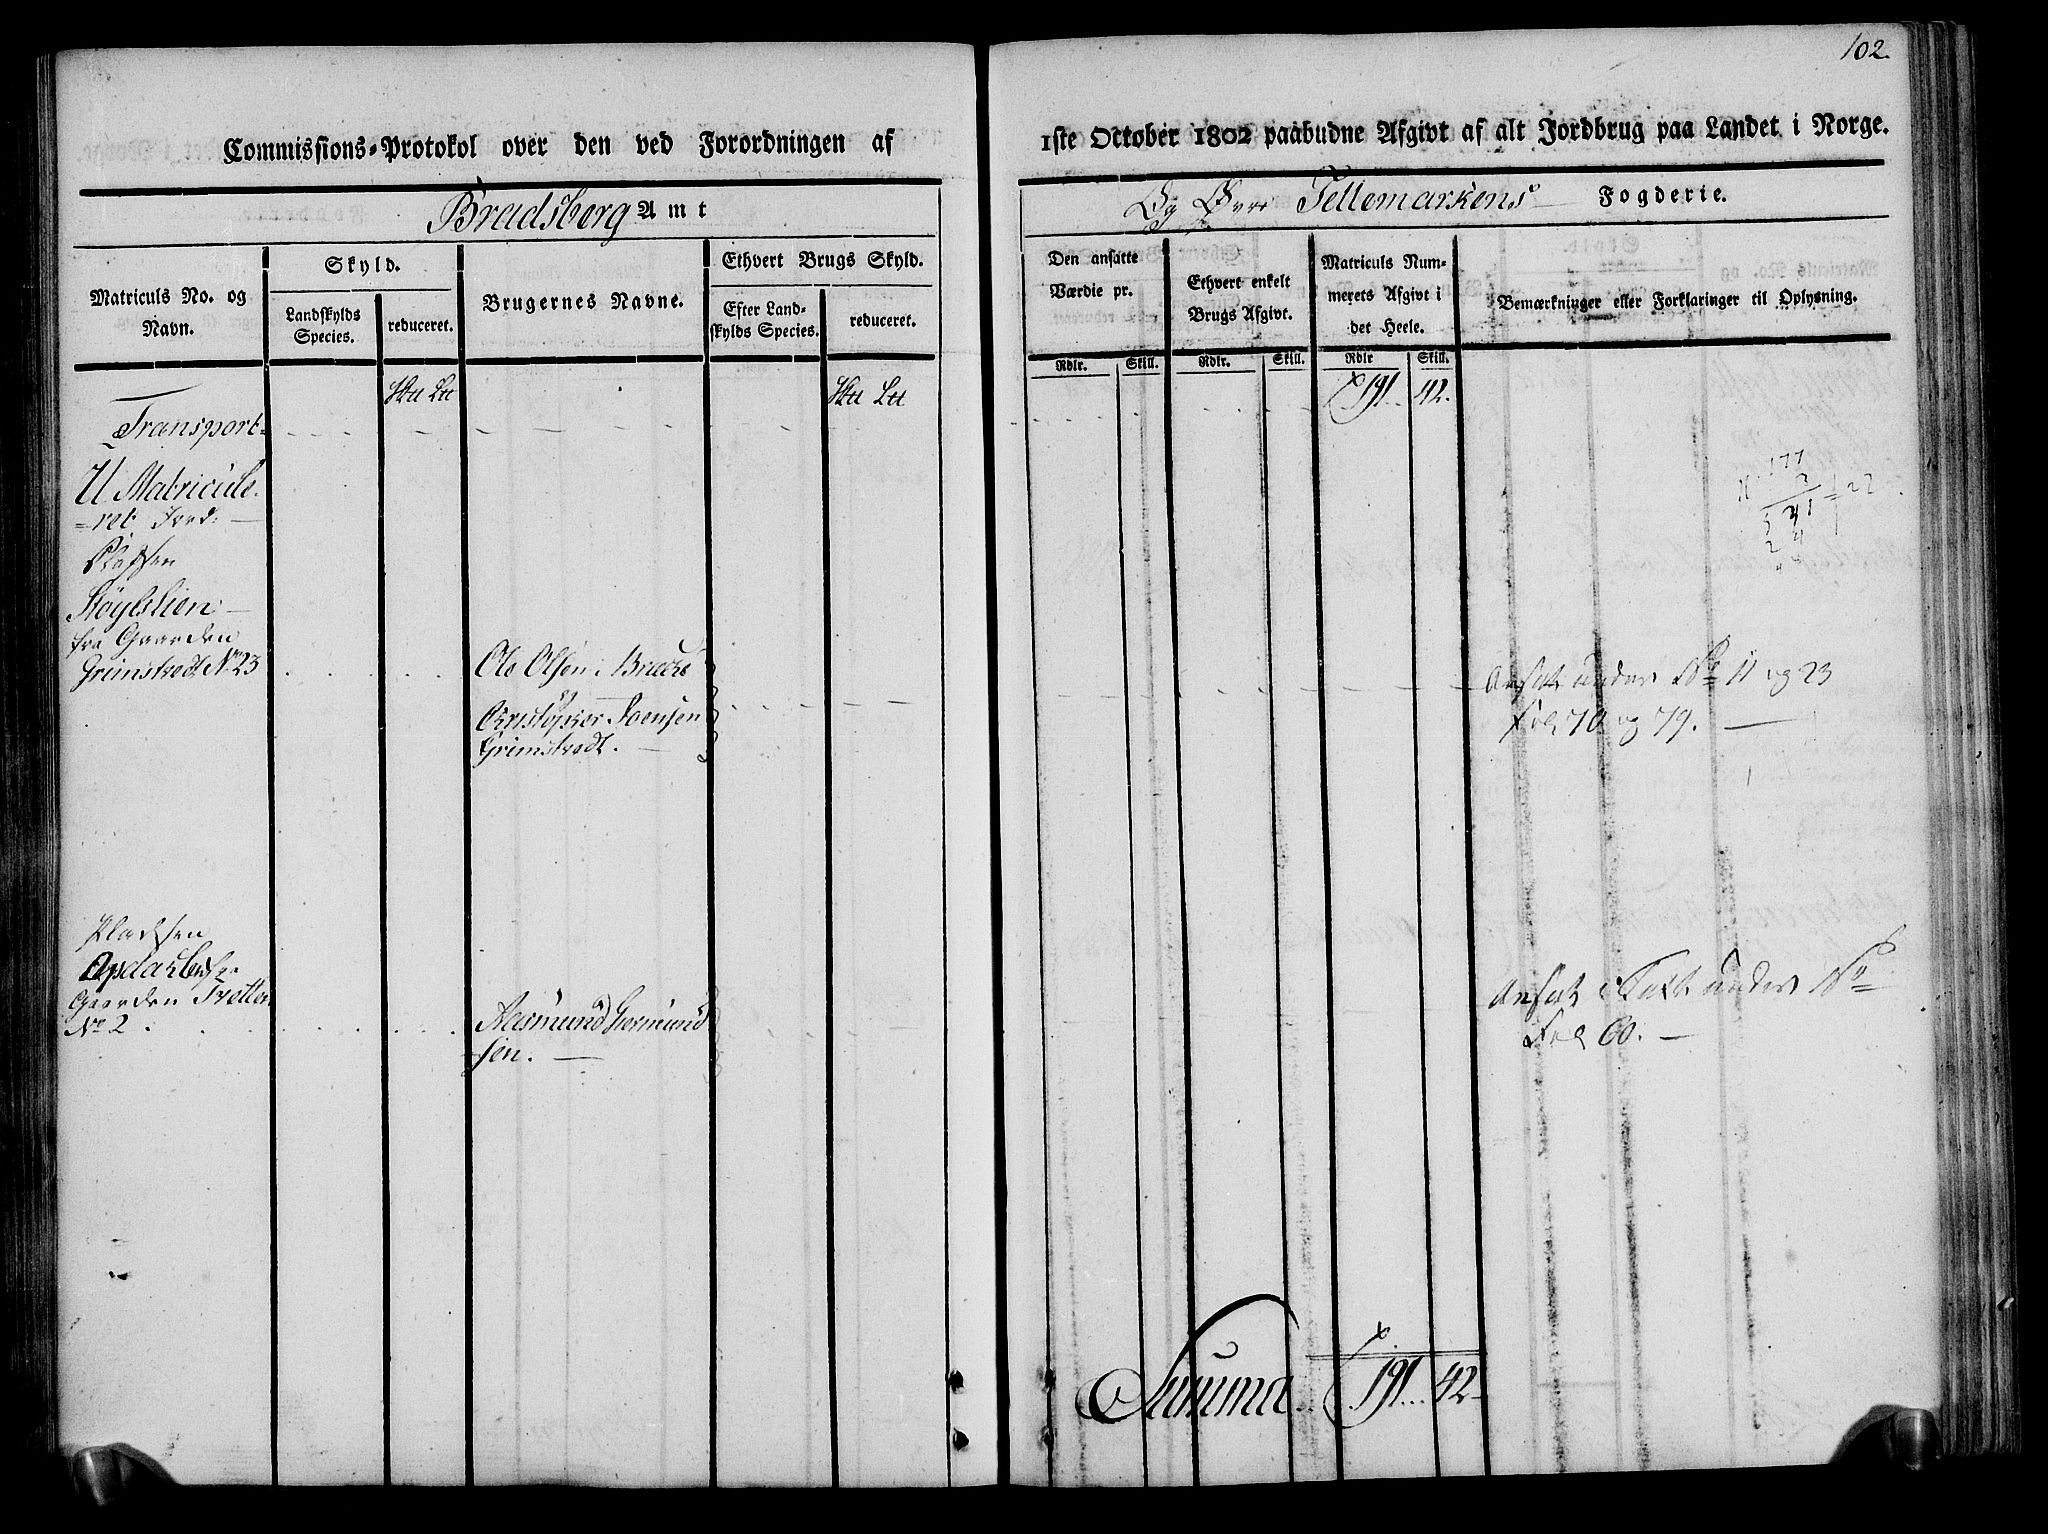 102.
Commissions-Protokol over den ved Forordningen af
1ste October 1802 paabudne Afgivt af alt Jordbrug paa Landet i Norge.
Bradsberg Amt
Øvre Tellemarkens Fogderie.
Matriculs No. og
Navn.
Skyld.
Landskylds
Species.
reduceret.
Brugernes Navne.
Ethvert Brugs Skyld.
Efter Land-
skylds Species.
reduceret.
Den ansatte
Værdie pr.
Rdlr. Skill.
Ethvert enkelt
Brugs Afgivt.
Rdlr. Skill.
Matriculs Num-
merets Afgivt i
det Heele.
Rdlr Skill.
Bemærkninger eller Forklaringer til Oplysning.
Transport
191 42.
U Matricule
=ret Jord:
Pladsen
Støylslien
fra Gaarden
Grimstvedt No 23
Ole Olsen i Brække
og
Christopher Joensen
Grimstvedt.
Ansat under No 11 og 23
Fol 70 og 79.
Pladsen
Gaarden Tvetten
No 2
Aasmund Gormund
sen.
Ansat i Takt under No
Fol 60.
Summa 191 42
177